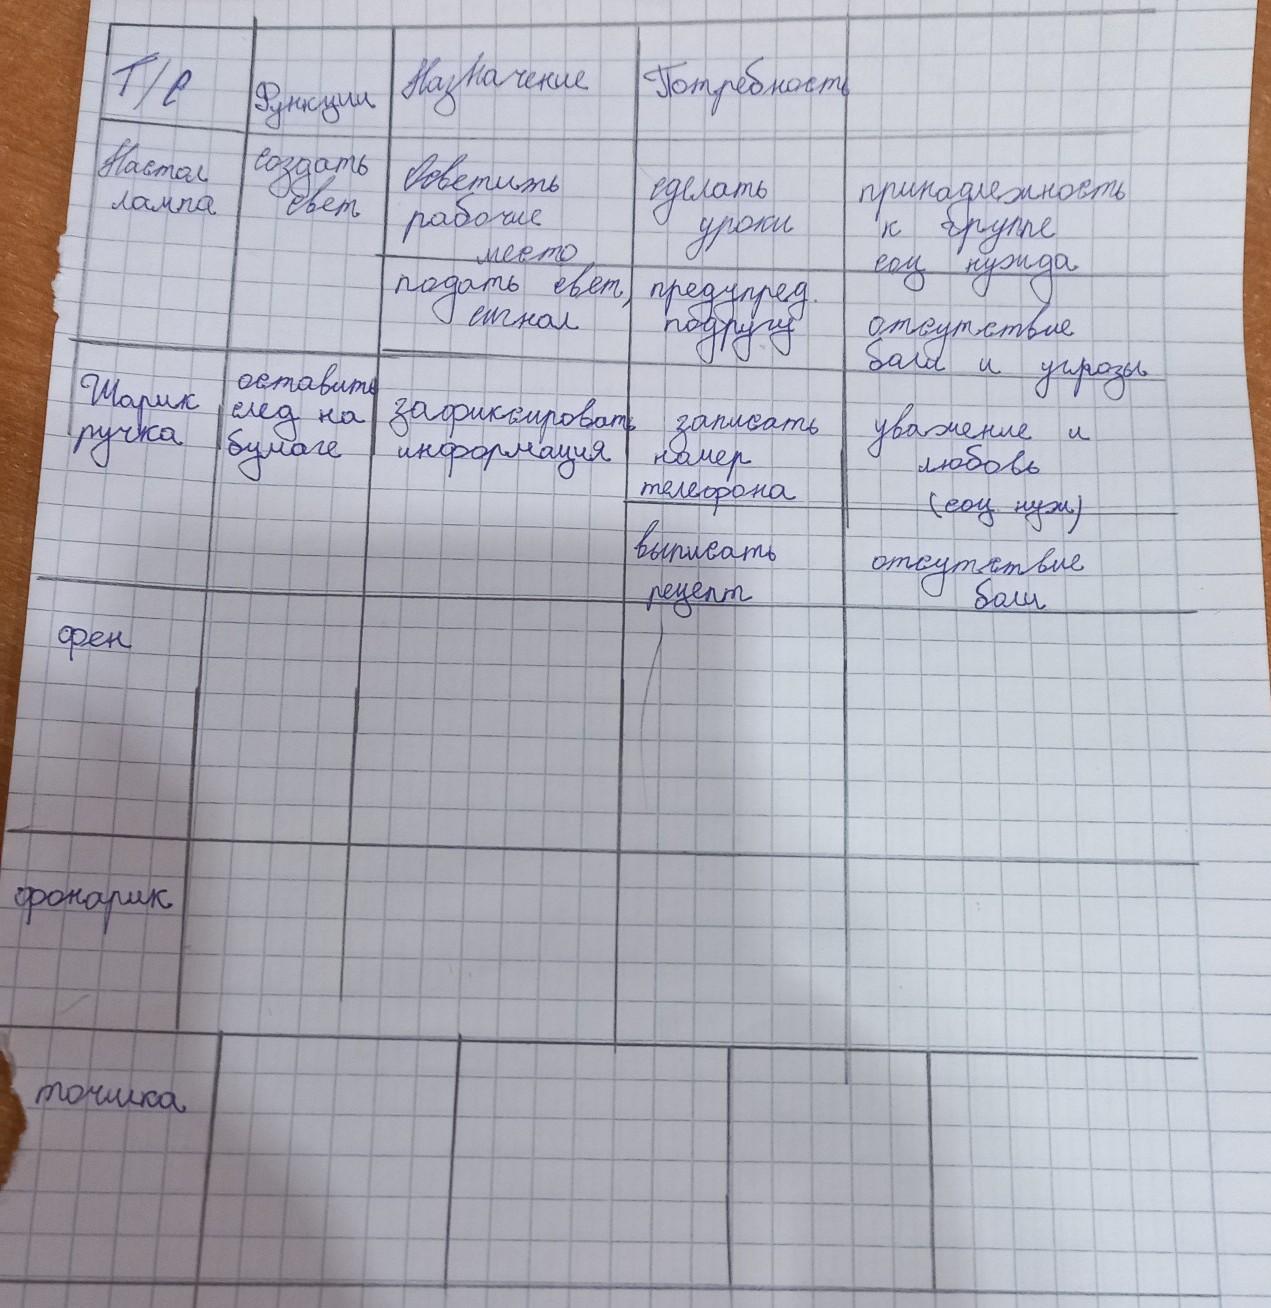 Т/С Функции Назначение Потребность
Настол создать Осветить сделать принадлежность
лампа свет рабочие уроки к группе
место соц нужда
подать свет, предупред. отсутствие
сигнал подругу боли и угрозы
Шарик оставить зафиксировать записать уважение и
ручка след на информация номер любовь
бумаге телефона (соц нуж)
выписать отсутствие
рецепт боли
фен
фонарик
точилка